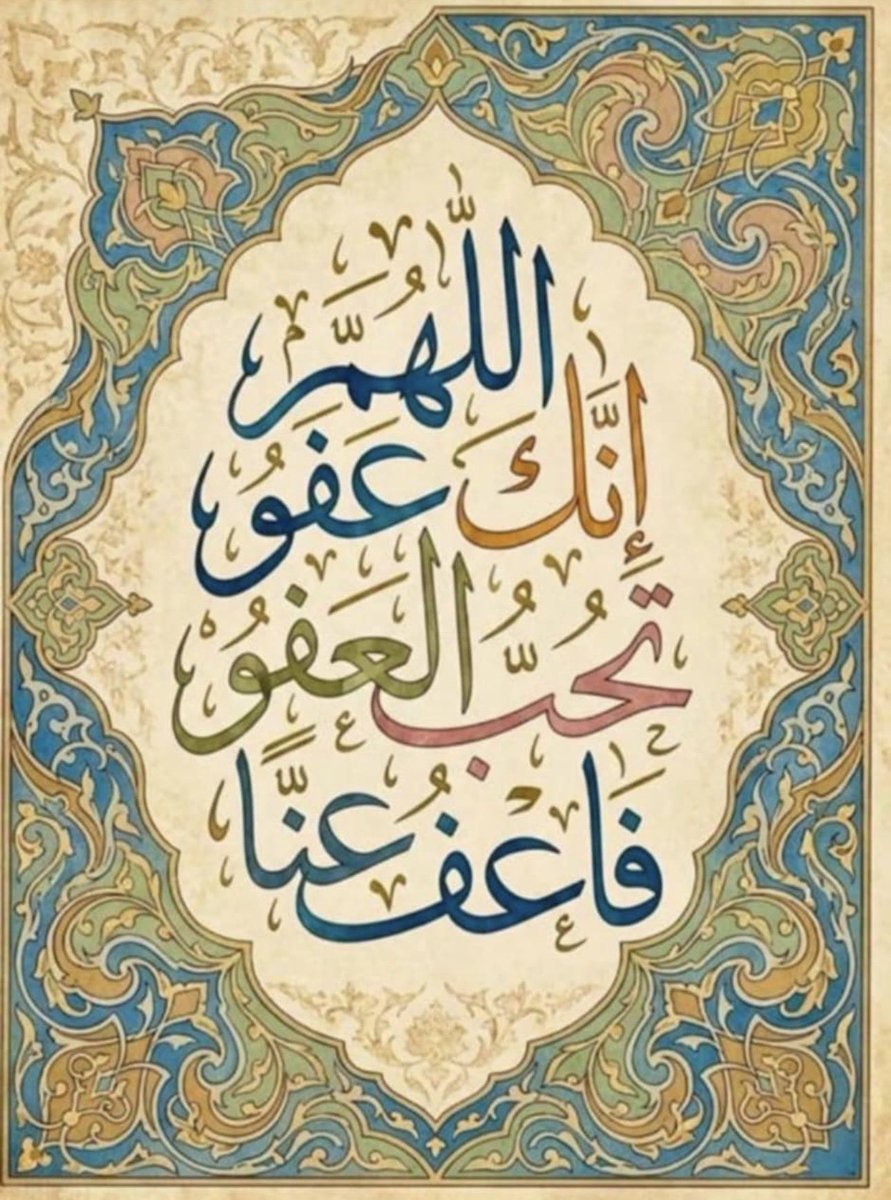 اللَّهُمَّ
إِنَّكَ عَفَوُ
تُحُبُّ العَفَوُ
فَاعْفُ عَنَّا